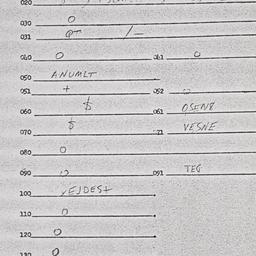 020
030 0
031 QT /-
040 0 041 0
050 ANUMLT
051 + 052 0
060 $ 061 OSEN8
070 $ 071 VESNE
080 0
090 0 091 TEG
100 VEJDES+
110 0
120 0
130 0